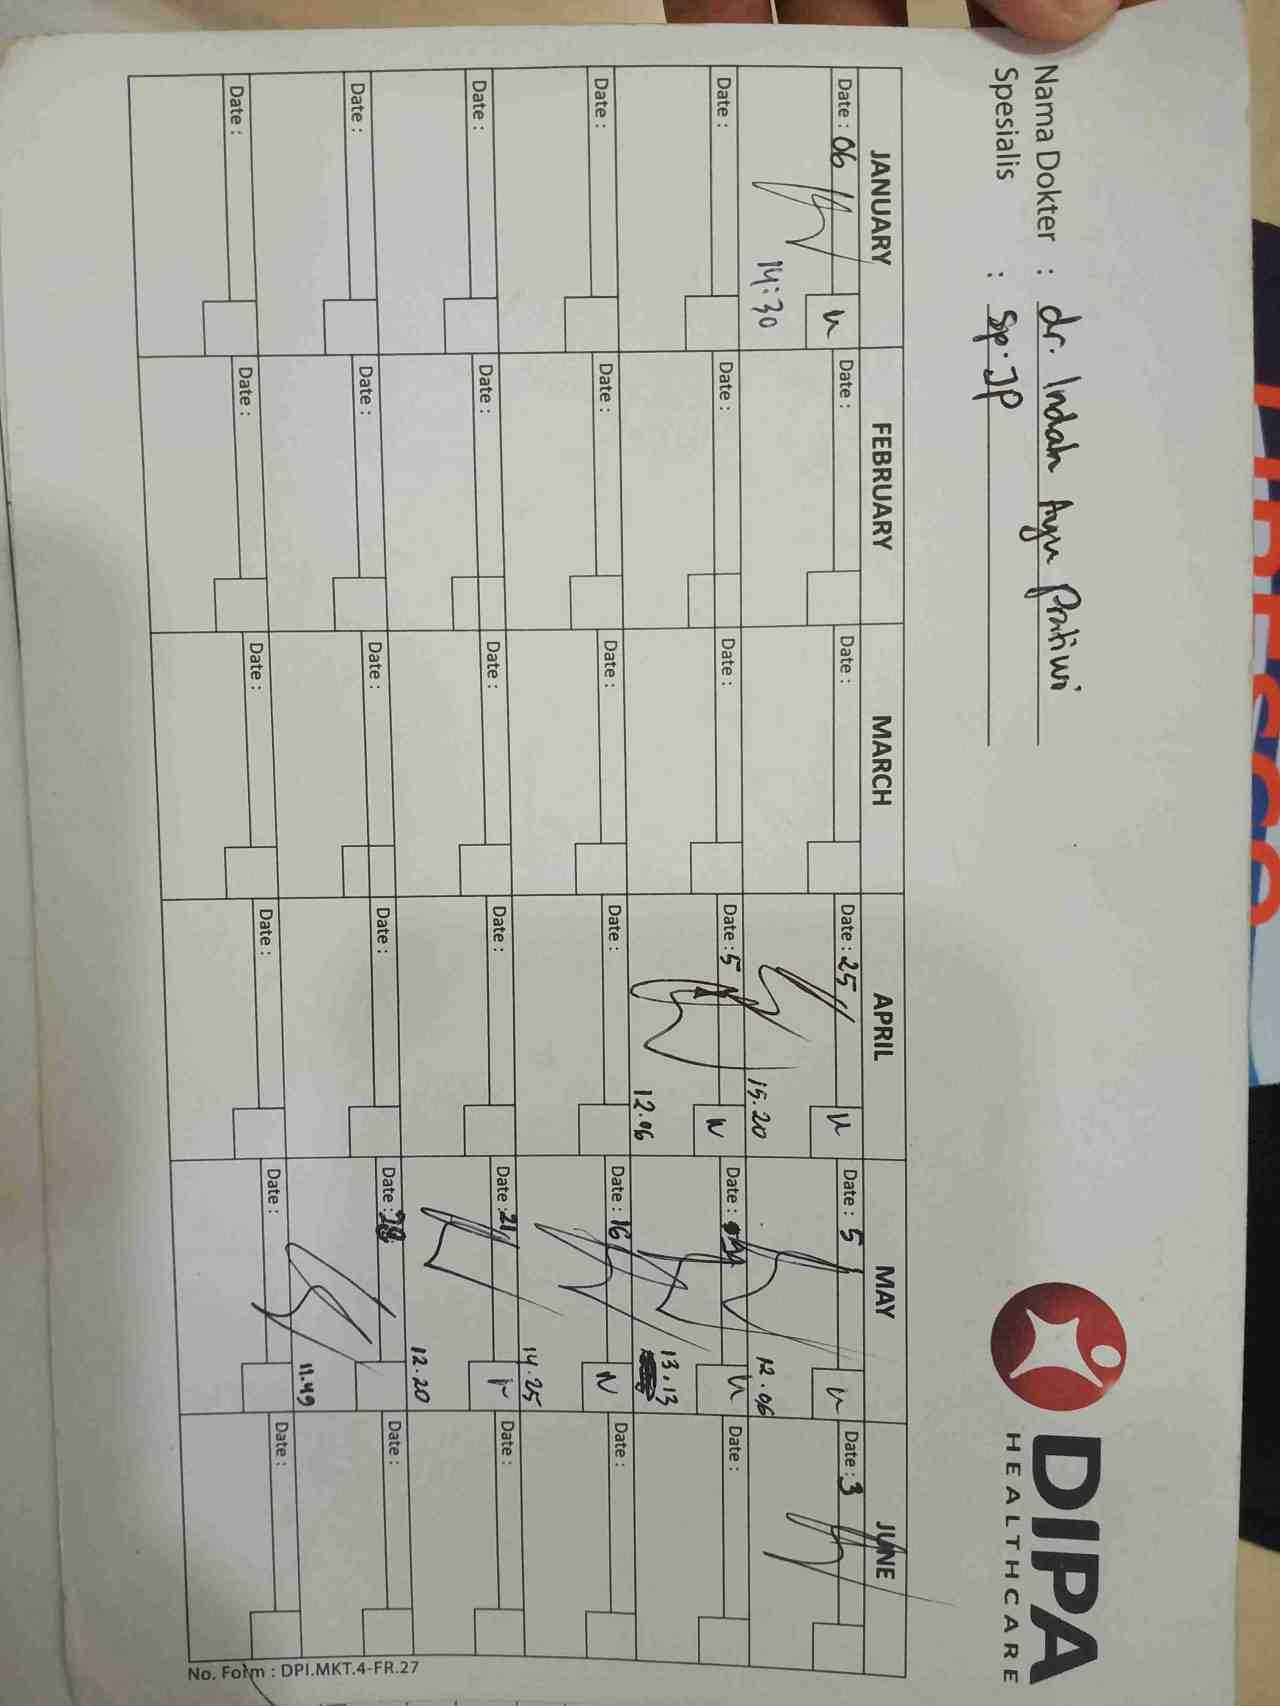 Nama Dokter : dr. Indah Ayu Pratiwi
Spesialis : Sp.JP
DIPA
HEALTHCARE
JANUARY FEBRUARY MARCH APRIL MAY JUNE
Date : 06 Date : Date : Date : 25 Date : 5 Date : 3
14:30 15.20 12.06
Date : Date : Date : Date : 5 Date :
Date :
12.06 13.13
Date : Date : Date : Date : Date : 16 Date :
14.25
Date : Date : Date : Date : Date : 21 Date :
12.20
Date : Date : Date : Date : Date : 28 Date :
11.49
Date : Date : Date : Date : Date : Date :
No. Form : DPI.MKT.4-FR.27